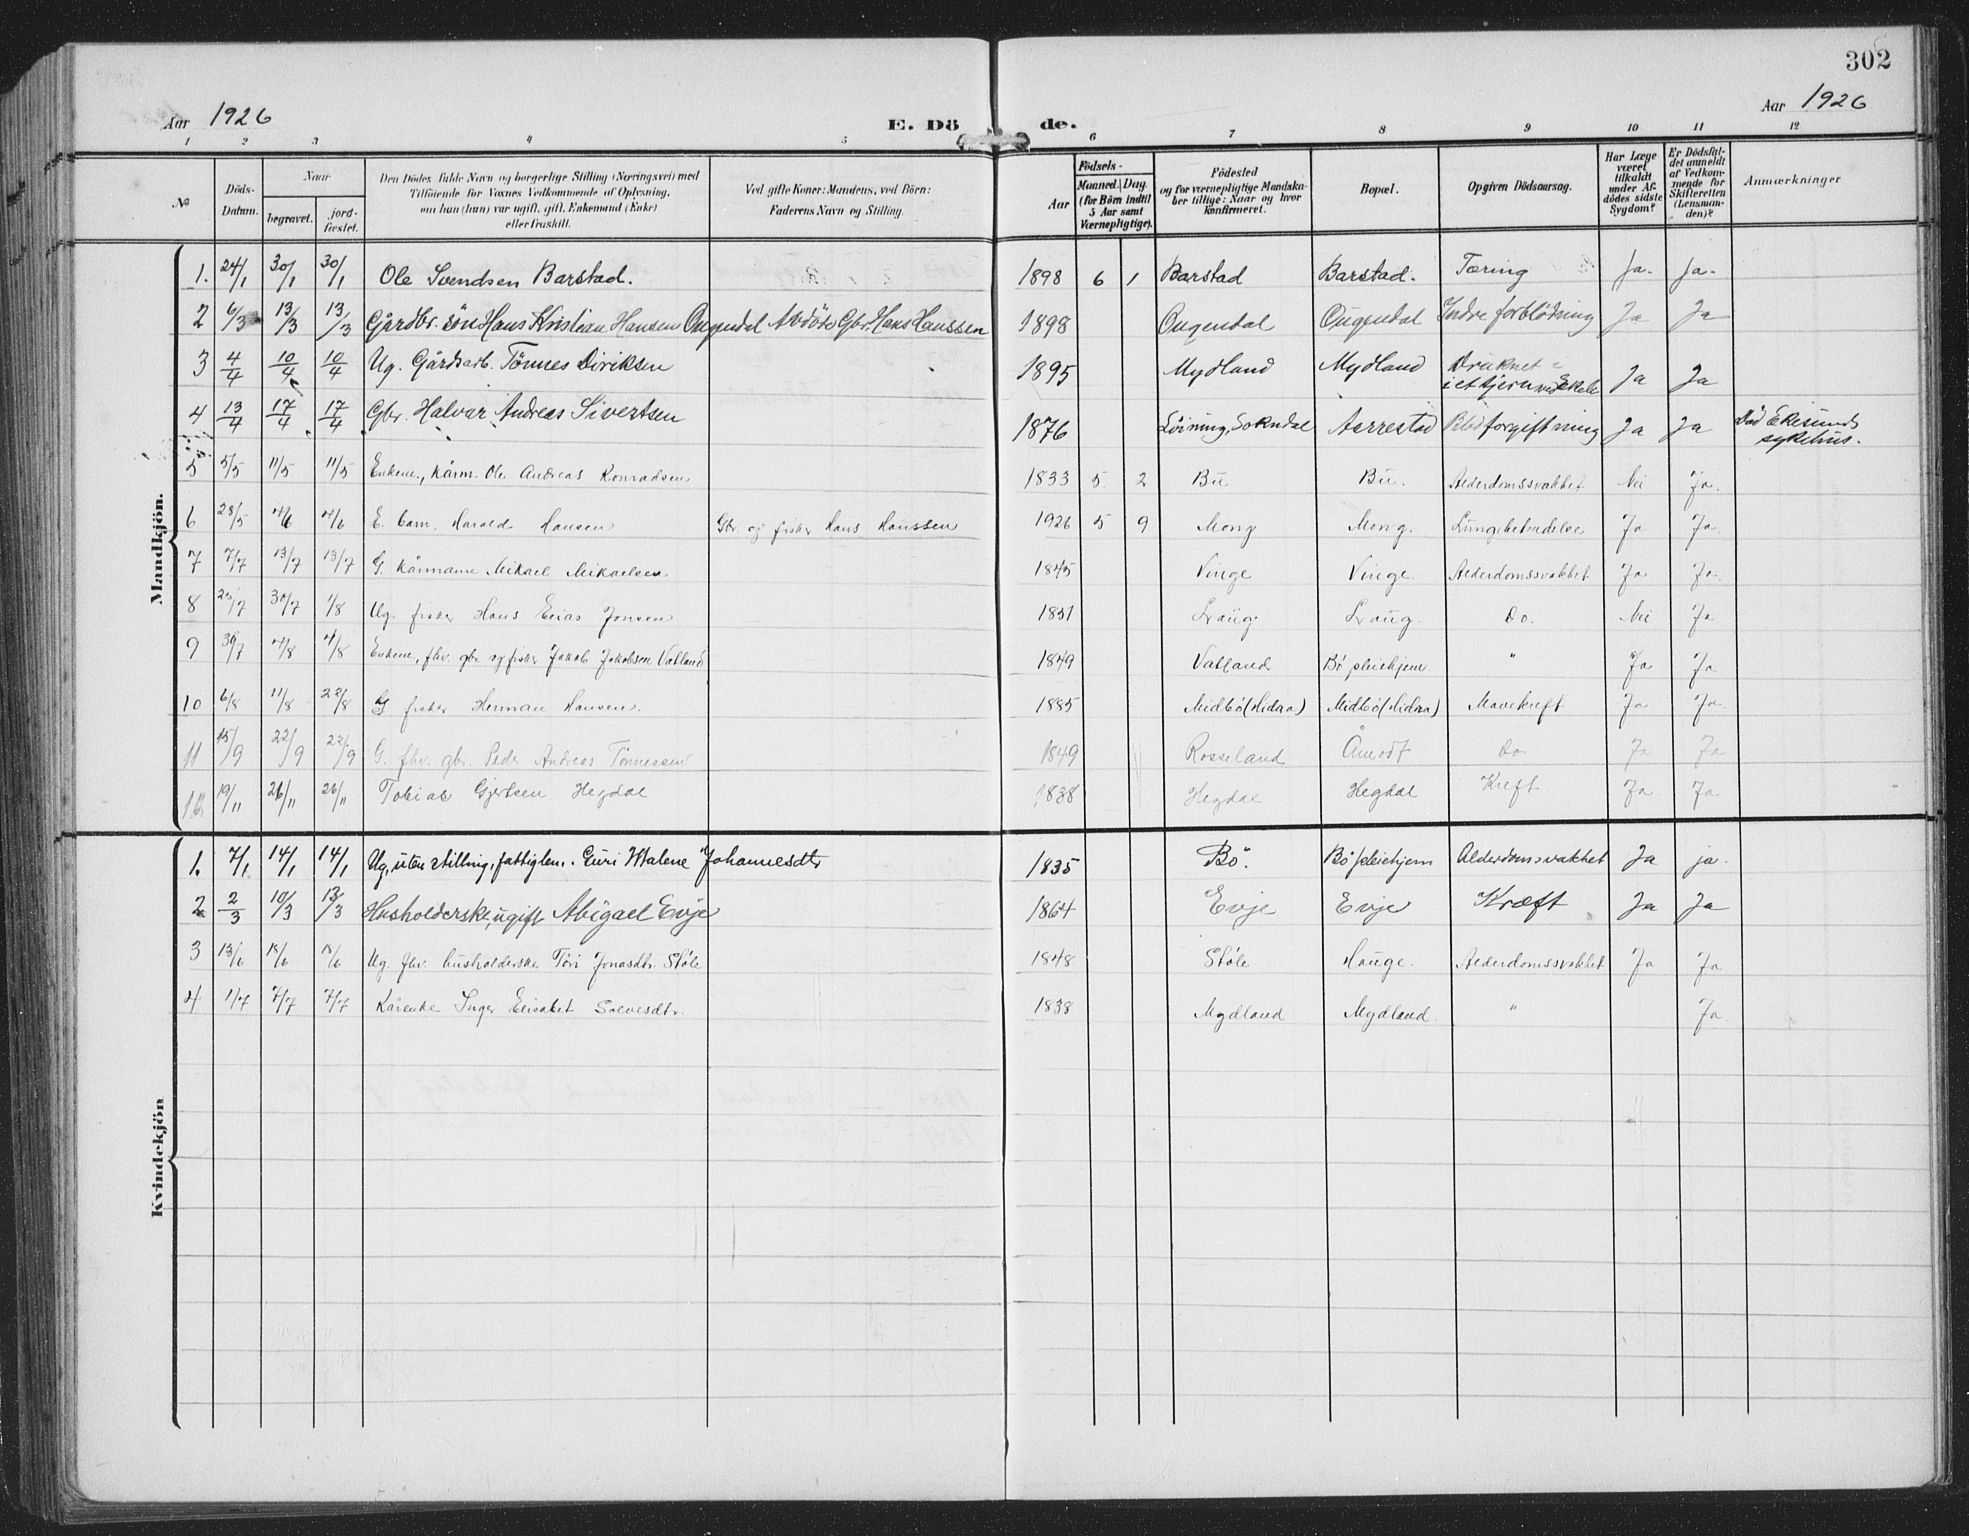 302
Aar 1926
E. Dö de.
Aar 1926
1 2 3 4 5 6 7 8 9 10 11 12
№
Döds-Datum.
Naar
begravet.
jordfæstet.
Den Dödes fulde Navn og borgerlige Stilling (Næringsvei) med
Tilföiende for Voxnes Vedkommende af Oplysning,
om han (hun) var ugift, gift, Enkemand (Enke)
eller fraskilt.
Ved gifte Koner: Mandens, ved Börn:
Faderens Navn og Stilling.
Födsels-
Aar
Maaned. Dag.
(for Börn indtil
5 Aar samt
Værnepligtige).
Födested
og for værnepligtige Mandska-
ber tillige: Naar og hvor
konfirmeret.
Bopæl.
Opgiven Dödsaarsag.
Har Læge
været
tilkaldt
under Af-
dödes sidste
Sygdom?
Er Dödsfal-
det anmeldt
af Vedkom-
mende for
Skifteretten
(Lensman-
den)?
Anmærkninger
Mandkjön.
1. 24/1 30/1 30/1 Ole Svendsen Barstad. 1898 6 1 Barstad Barstad. Tæring Ja. Ja.
2 6/3 13/3 13/3 Gårdbr. sön Hans Kristian Hansen Ougendal Avdöde Gbr. Hans Hanssen 1898 Ougendal Ougendal Indre forblödning Ja Ja
3 4/4 10/4 10/4 Ug. Gårdsarb. Tönnes Diriksen 1895 Mydland Mydland Druknet i et tjern ved Ekele Ja Ja
4 13/4 17/4 17/4 Gbr. Halvar Andreas Sivertsen 1876 Löining, Sokndal Aarrestad Blodforgiftning Ja Ja Död Ekersunds sykehus.
5 5/5 11/5 11/5 Enkem., kårm. Ole Andreas Konradsen 1833 5 2 Bu Bu. Alderdomssvakhet Nei Ja.
6 28/5 4/6 4/6 E. barn. Harald Hansen Gbr. og fisker Hans Hanssen 1926 5 9 Mong Mong. Lungebetændelse Ja Ja.
7 7/7 13/7 13/7 G. kårmann Mikael Mikaelsen 1845 Vinge Vinge. Alderdomssvakhet Ja Ja.
8 30/7 1/8 Ug. fisker Hans Elias Jonsen 1851 Do. Nei Ja
9 30/7 4/8 4/8 Enkem., fhv. gbr. og fisker Jakob Jakobsen Vatland 1849 Vatland Bö pleiehjem " Ja Ja.
10 6/8 11/8 22/8 G fisker Herman Hansen. 1885 Midbö (Hidra) Midbö (Hidra) Mavekreft Ja Ja.
11 15/9 22/9 22/9 G. fhv. gbr. Peder Andreas Tönnessen 1849 Rosseland Åmodt Do Ja Ja
12. 19/11 26/11 26/11 Tobias Gjertsen Hegdal 1838 Hegdal Hegdal Kreft Ja. Ja
Kvindekjön
1. 7/1 14/1 14/1 Ug, uten stilling, fattiglem. Guri Malene Johannesdtr 1835 Bö. Bö pleiehjem Alderdomssvakhet Ja ja.
2 2/3 10/3 13/3 Husholderske, ugift Abigael Evje 1864 Evje Evje Kræft Ja Ja
3 13/6 18/6 18/6 Ug. fhv. husholderske Töri Jonasdtr. Stöle 1848 Stöle Hauge. Alderdomssvakhet Ja Ja
4 1/7 7/7 7/7 Kårenke Inger Elisabet Salvesdtr. 1838 Mydland Mydland. " Ja.